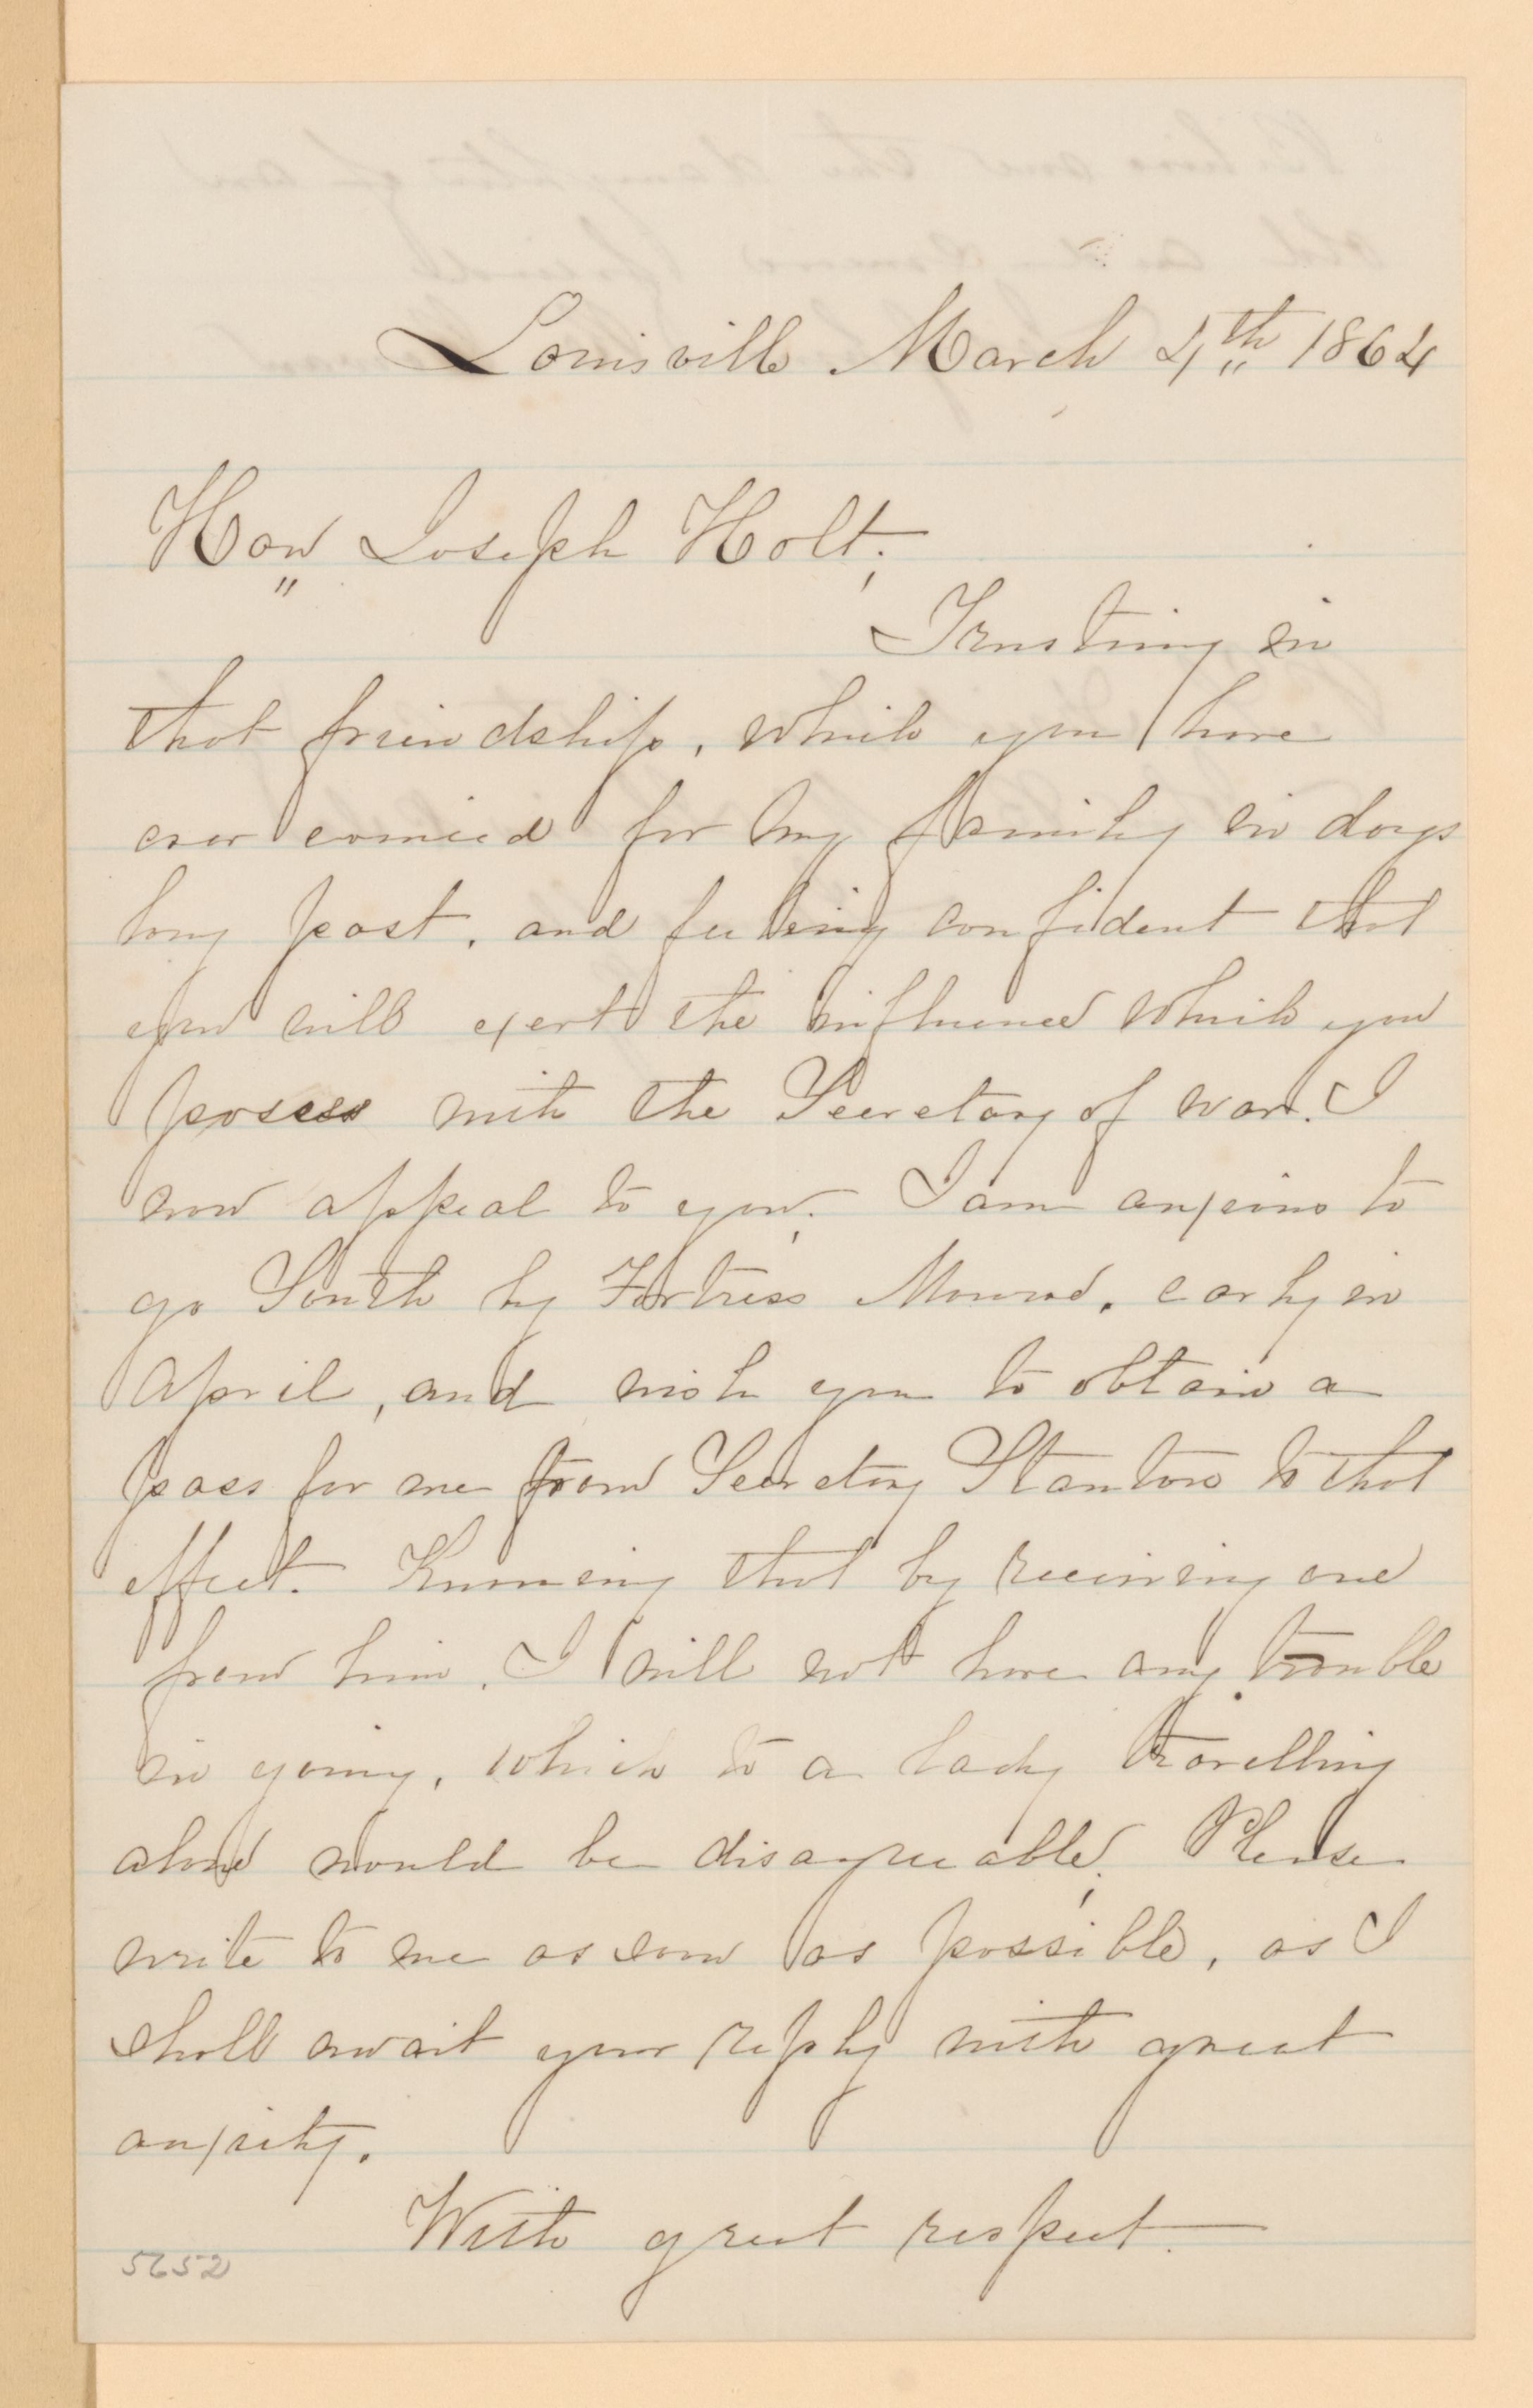 Louisville March 4th 1864
Hon Joseph Holt;
Trusting in
that friendship, which you have
ever evinced for my family in days
long past, and feeling confident that
you will exert the influence which you
posess with the Secretary of war. I
now appeal to you; I am anxious to
go South by Fortress Monroe, early in
April, and wish you to obtain a
pass for me from Secretary Stanton to that
effect. Knowing that by receiving one
from him, I will not have any trouble
in going, which to a lady travelling
alone would be disagreeable; Please
write to me as soon as possible, as I
shall await your reply with great
anxiety.
With great respect.
5652